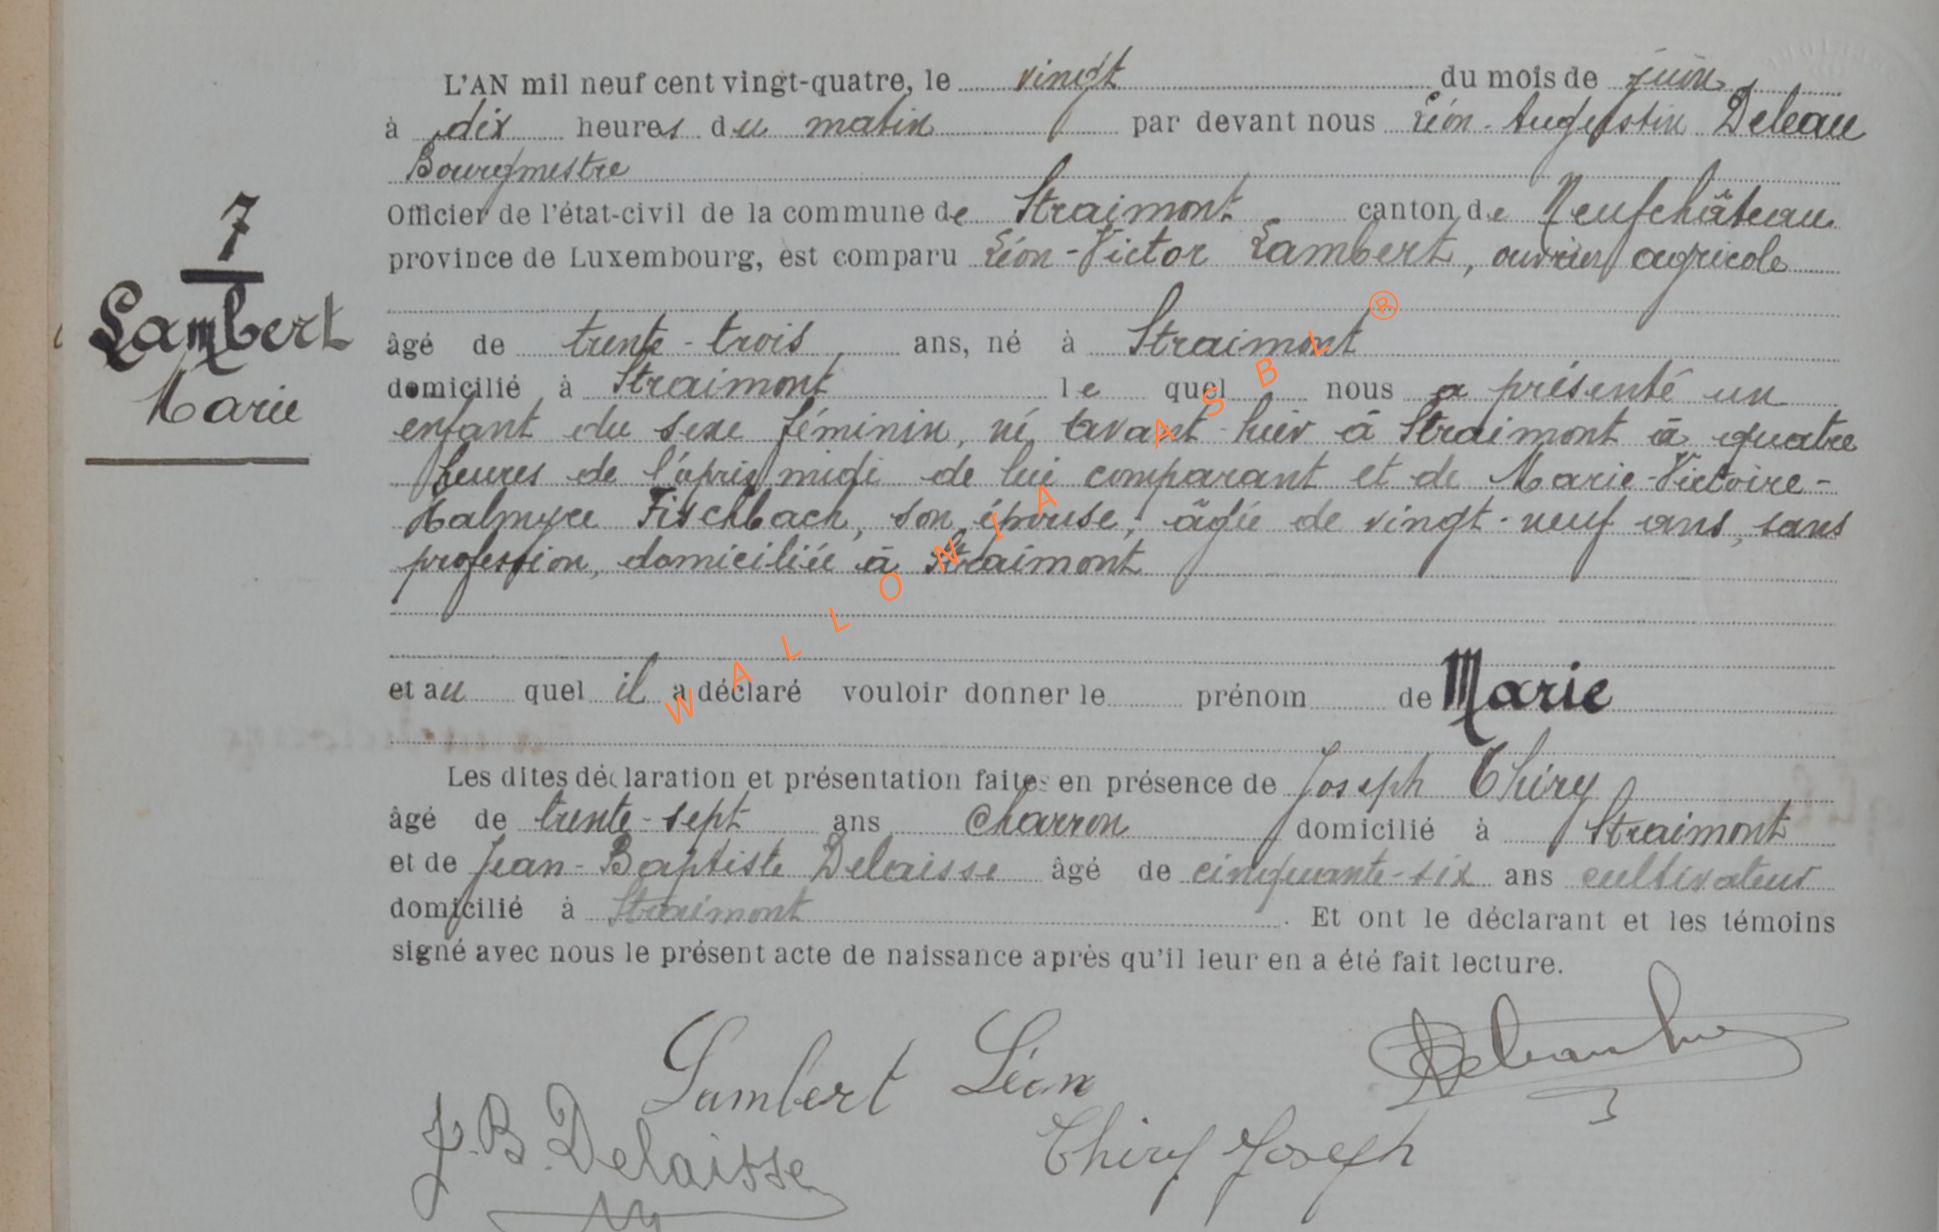 L'AN mil neuf cent vingt-quatre, le vingt du mois de juin
à dix heures du matin par devant nous Léon-Augustin Deleau
Bourgmestre
Officier de l'état-civil de la commune de Straimont canton de Neufchâteau
province de Luxembourg, est comparu Léon-Victor Lambert, ouvrier agricole
7
Lambert
Marie
âgé de trente-trois ans, né à Straimont
domicilié à Straimont le quel nous a présenté un
enfant du sexe féminin, né avant-hier à Straimont à quatre
heures de l'après midi de lui comparant et de Marie-Victoire-
Palmyre Fischbach, son épouse, âgée de vingt-neuf ans, sans
profession, domiciliée à Straimont
et au quel il a déclaré vouloir donner le prénom de Marie
Les dites déclaration et présentation faites en présence de Joseph Thiry
âgé de trente-sept ans charron domicilié à Straimont
et de Jean-Baptiste Delaisse âgé de cinquante-six ans cultivateur
domicilié à Straimont. Et ont le déclarant et les témoins
signé avec nous le présent acte de naissance après qu'il leur en a été fait lecture.
Lambert Léon
J.B. Delaisse
Thiry Joseph
WALLONIA ASBL ®